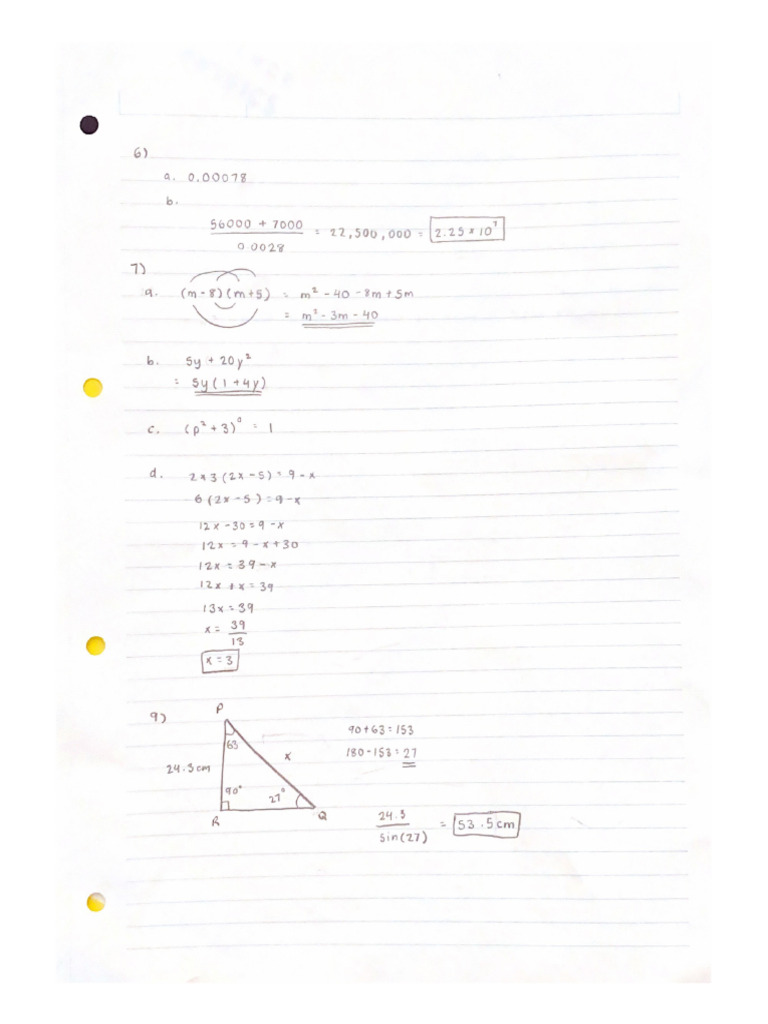 6)
a. 0.00078
b.
56000 + 7000
0.0028
= 22,500,000 = 2.25 × 10⁷
7)
a. (m-8)(m+5) = m² - 40 - 8m + 5m
= m² - 3m - 40
b. 5y + 20y²
= 5y(1+4y)
c. (p² + 3)⁰ = 1
d. 2×3(2x-5) = 9-x
6(2x-5) = 9-x
12x-30 = 9-x
12x = 9-x+30
12x = 39-x
12x + x = 39
13x = 39
x = 39
13
x = 3
9)
P
63
24.3cm
x
90°
27°
R
Q
90+63 = 153
180-153 = 27
24.3
sin(27)
= 53.5cm